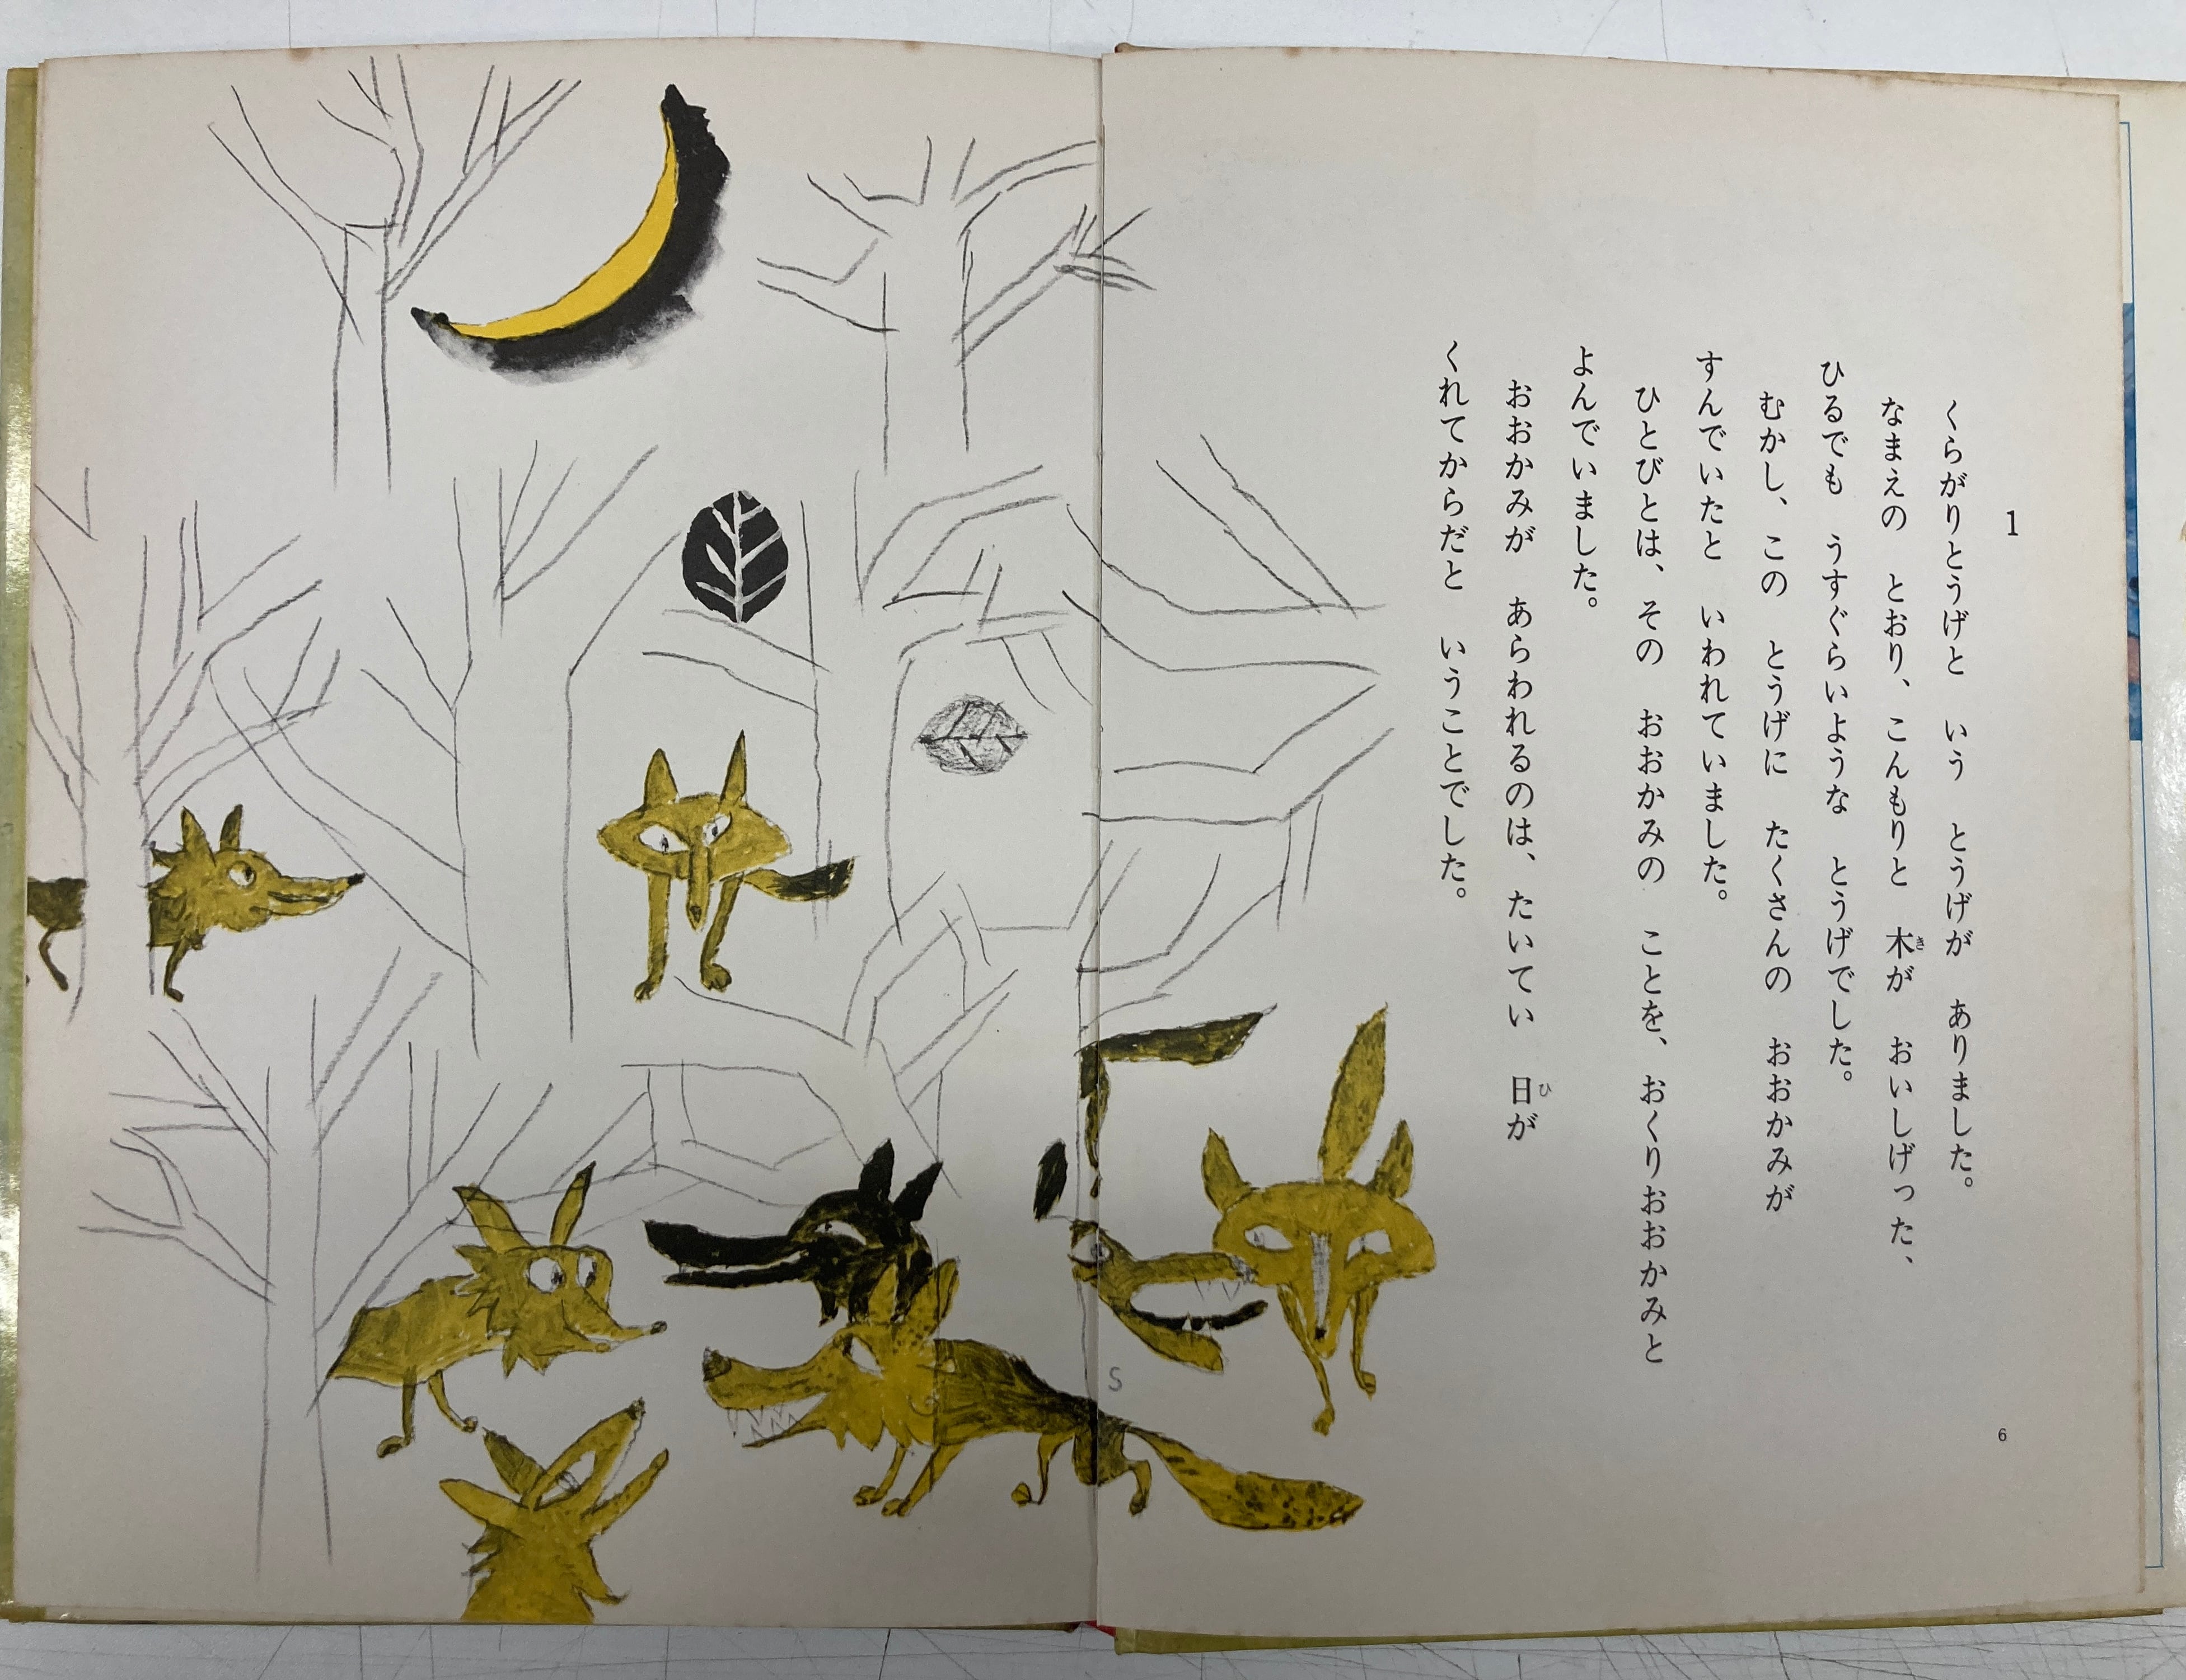 1
くらがりとうげと　いう　とうげが　ありました。
なまえの　とおり、こんもりと　木が　おいしげった、
き
ひるでも　うすぐらいような　とうげでした。
むかし、この　とうげに　たくさんの　おおかみが
すんでいたと　いわれていました。
ひとびとは、その　おおかみの　ことを、おくりおおかみと
よんでいました。
おおかみが　あらわれるのは、たいてい　日が
ひ
くれてからだと　いうことでした。
6
S